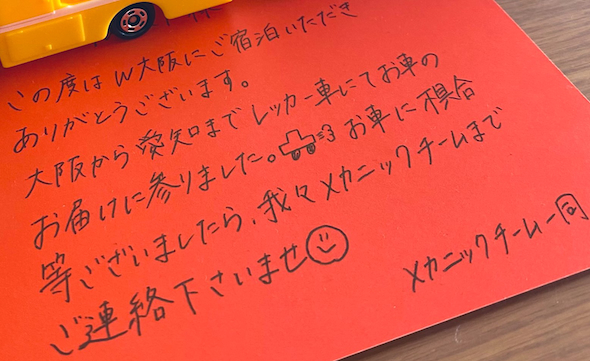 この度はW大阪にご宿泊いただき
ありがとうございます。
大阪から愛知までレッカー車にてお車の
お届けに参りました。お車に不具合
等ございましたら、我々メカニックチームまで
ご連絡下さいませ
メカニックチーム一同